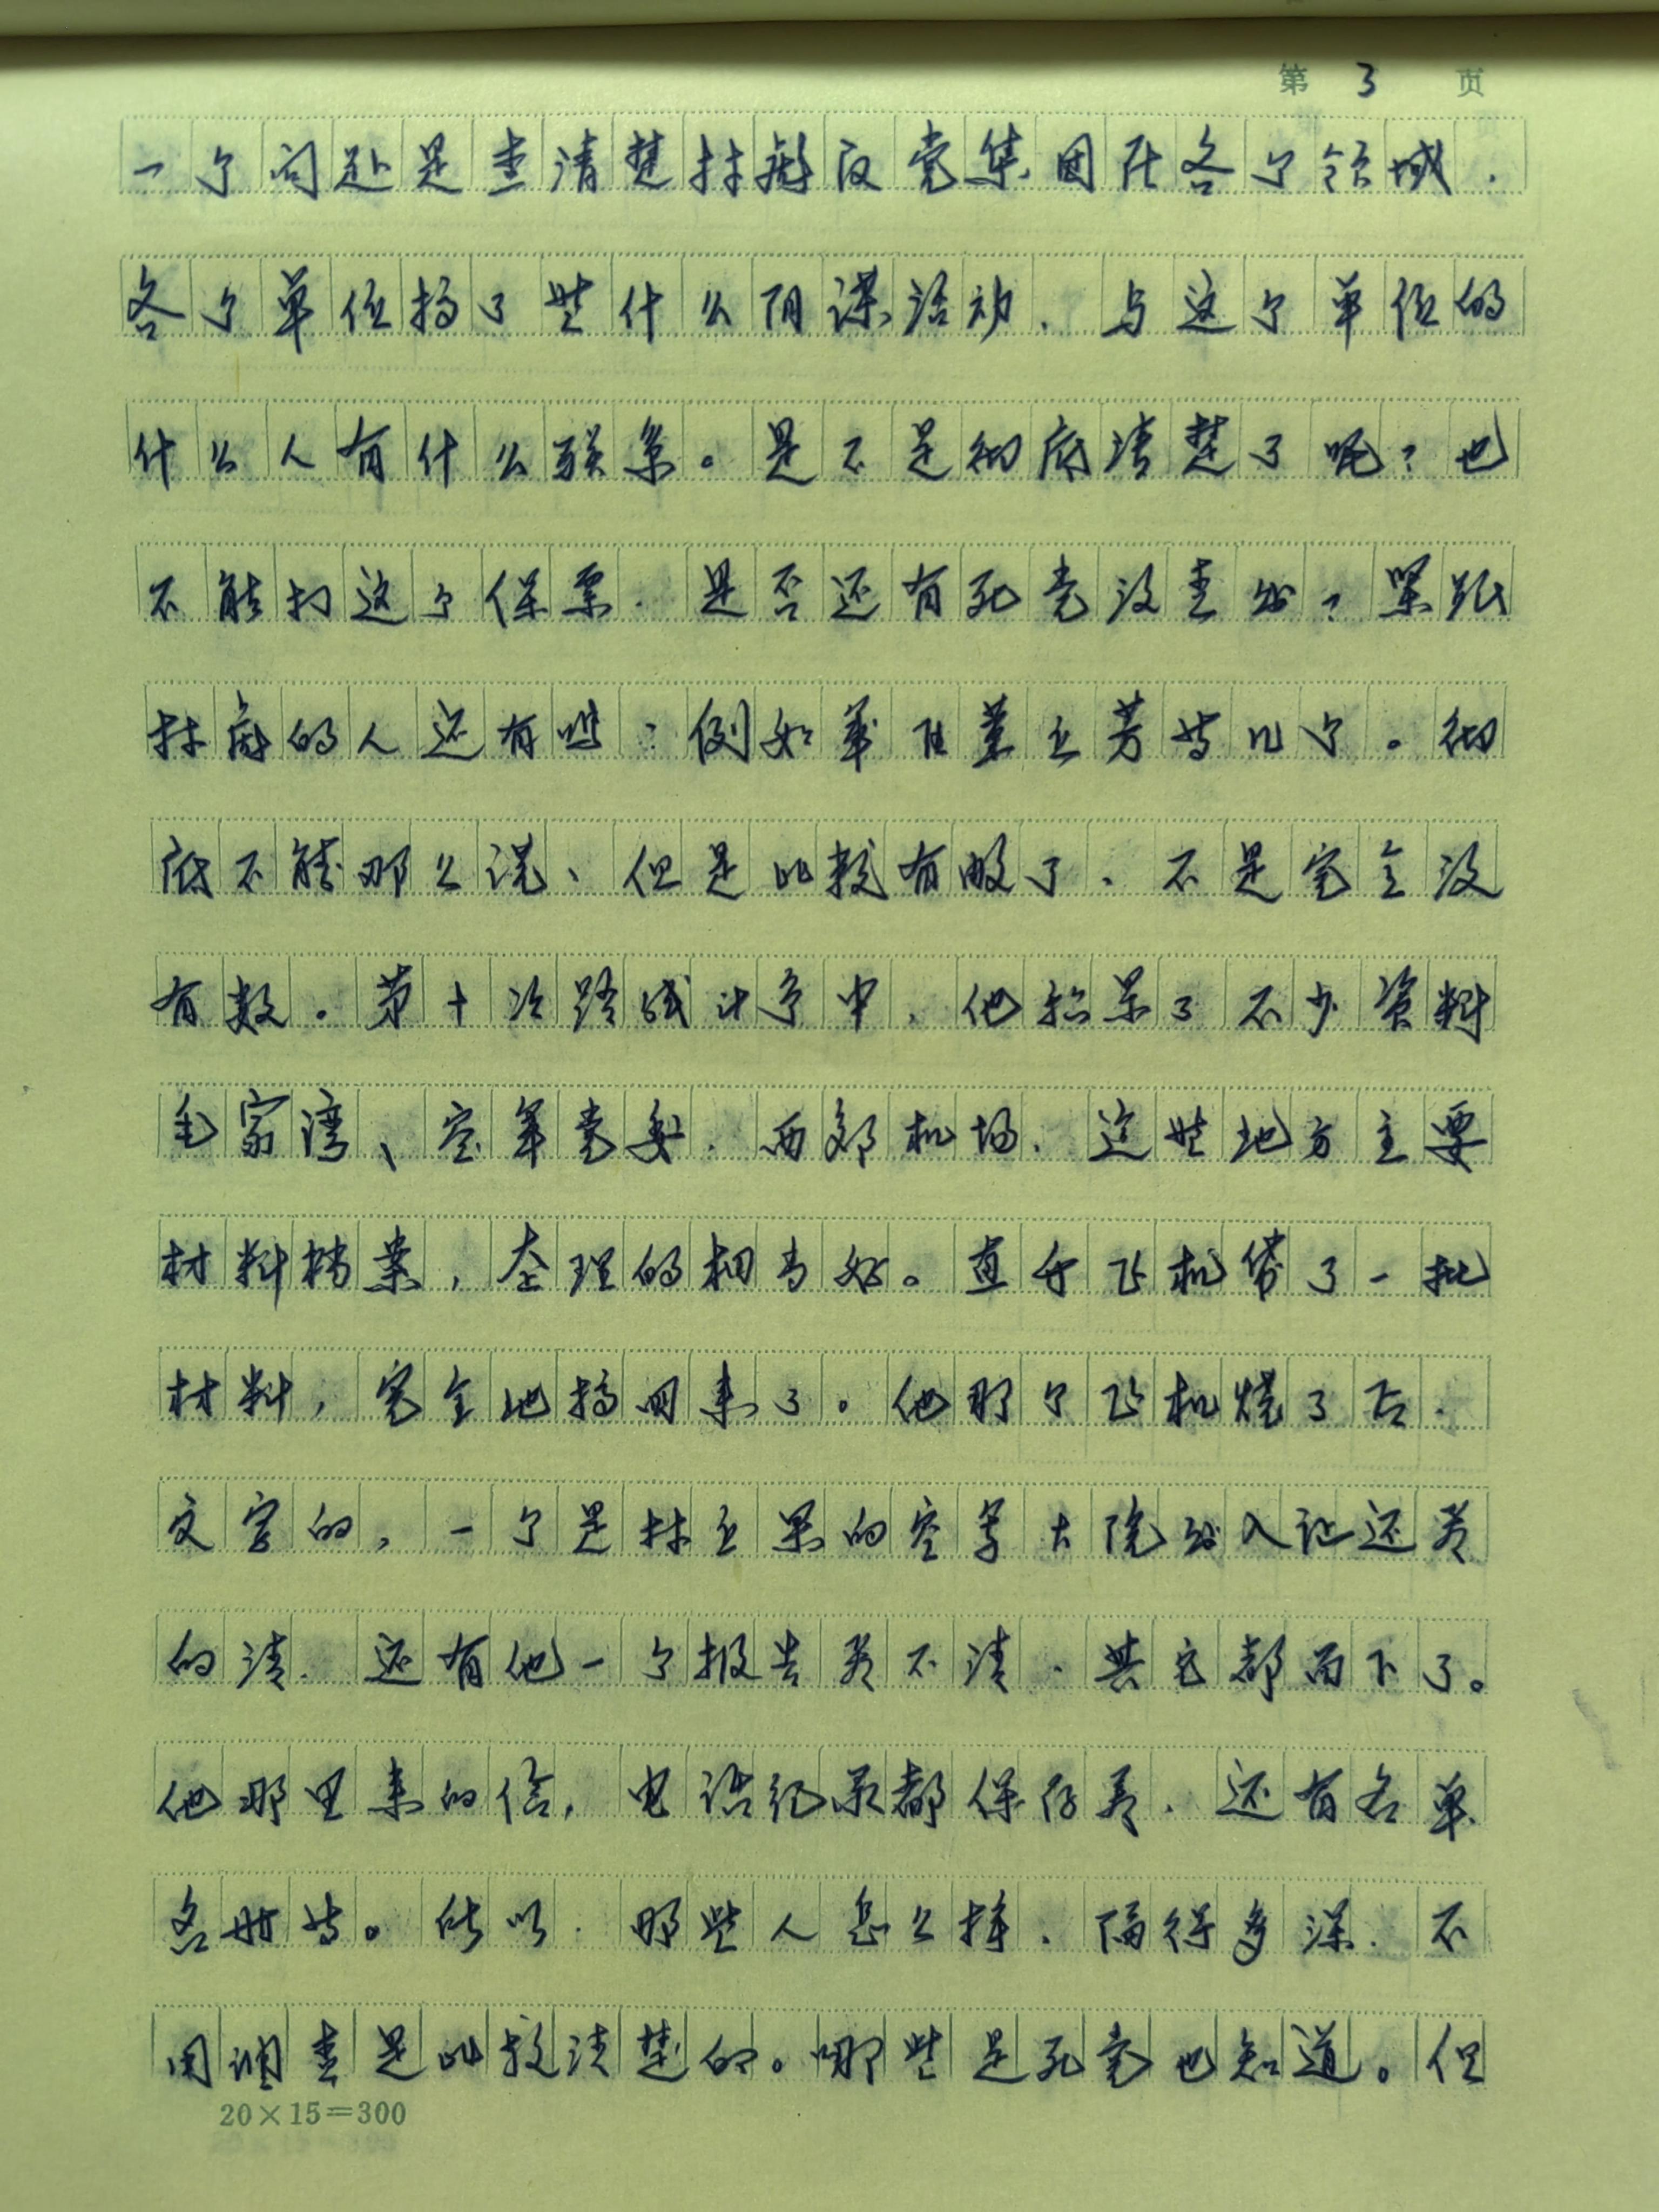 第 3 页
一个问题是查清楚林彪反党集团在各个领域、
各个单位搞了些什么阴谋活动、与这个单位的
什么人有什么联系。是不是彻底清楚了呢？也
不能打这个保票。是否还有死党没查出？紧跟
林彪的人还有吗？例如军队叶立芳等几个。彻
底不能那么说、但是比较有数了、不是完全没
有数。第十次路线斗争中、他给录了不少资料
毛家湾、空军党委、西郊机场、这些地方主要
材料档案，查理的相当好。直升飞机带了一批
材料，完全地搞回来了。他那个飞机烧了后、
文字的，一个是林立果的空军大院出入证还看
的清、还有他一个报告看不清、其它都留下了。
他那里来的信，电话纪录都保存着、还有名单
名册等。所以、那些人怎么样、陷得多深、不
用调查是比较清楚的。哪些是死党也知道。但
20×15=300